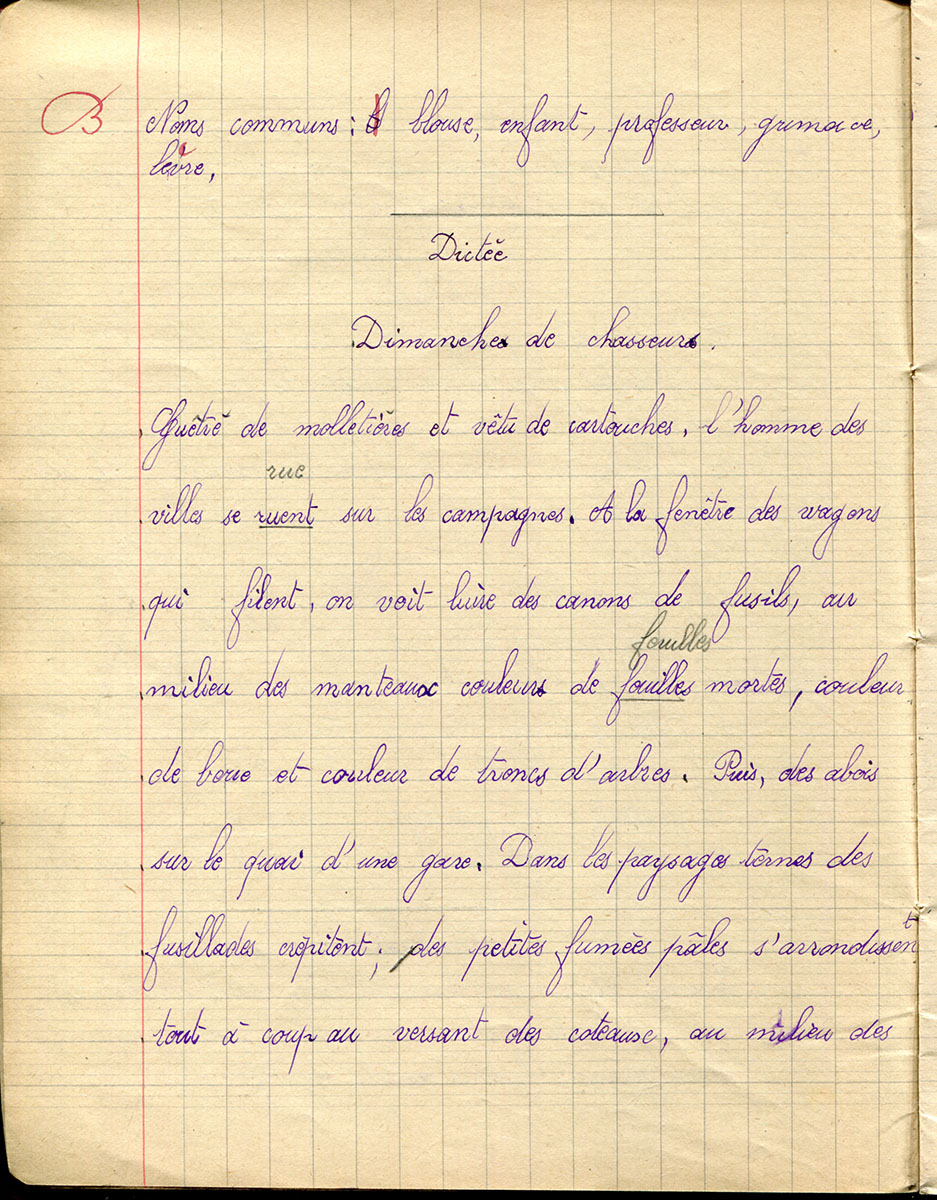 B
Noms communs : blouse, enfant, professeur, grimace,
lèvre,
Dictée
Dimanches de chasseurs.
Guêtré de molletières et vêtu de cartouches, l'homme des
rue
villes se ruent sur les campagnes. A la fenêtre des wagons
qui filent, on voit luire des canons de fusils, au
feuilles
milieu des manteaux couleurs de fouilles mortes, couleur
de boue et couleur de troncs d'arbres. Puis, des abois
sur le quai d'une gare. Dans les paysages ternes des
fusillades crépitent ; des petites fumées pâles s'arrondissent
tout à coup au versant des coteaux, au milieu des